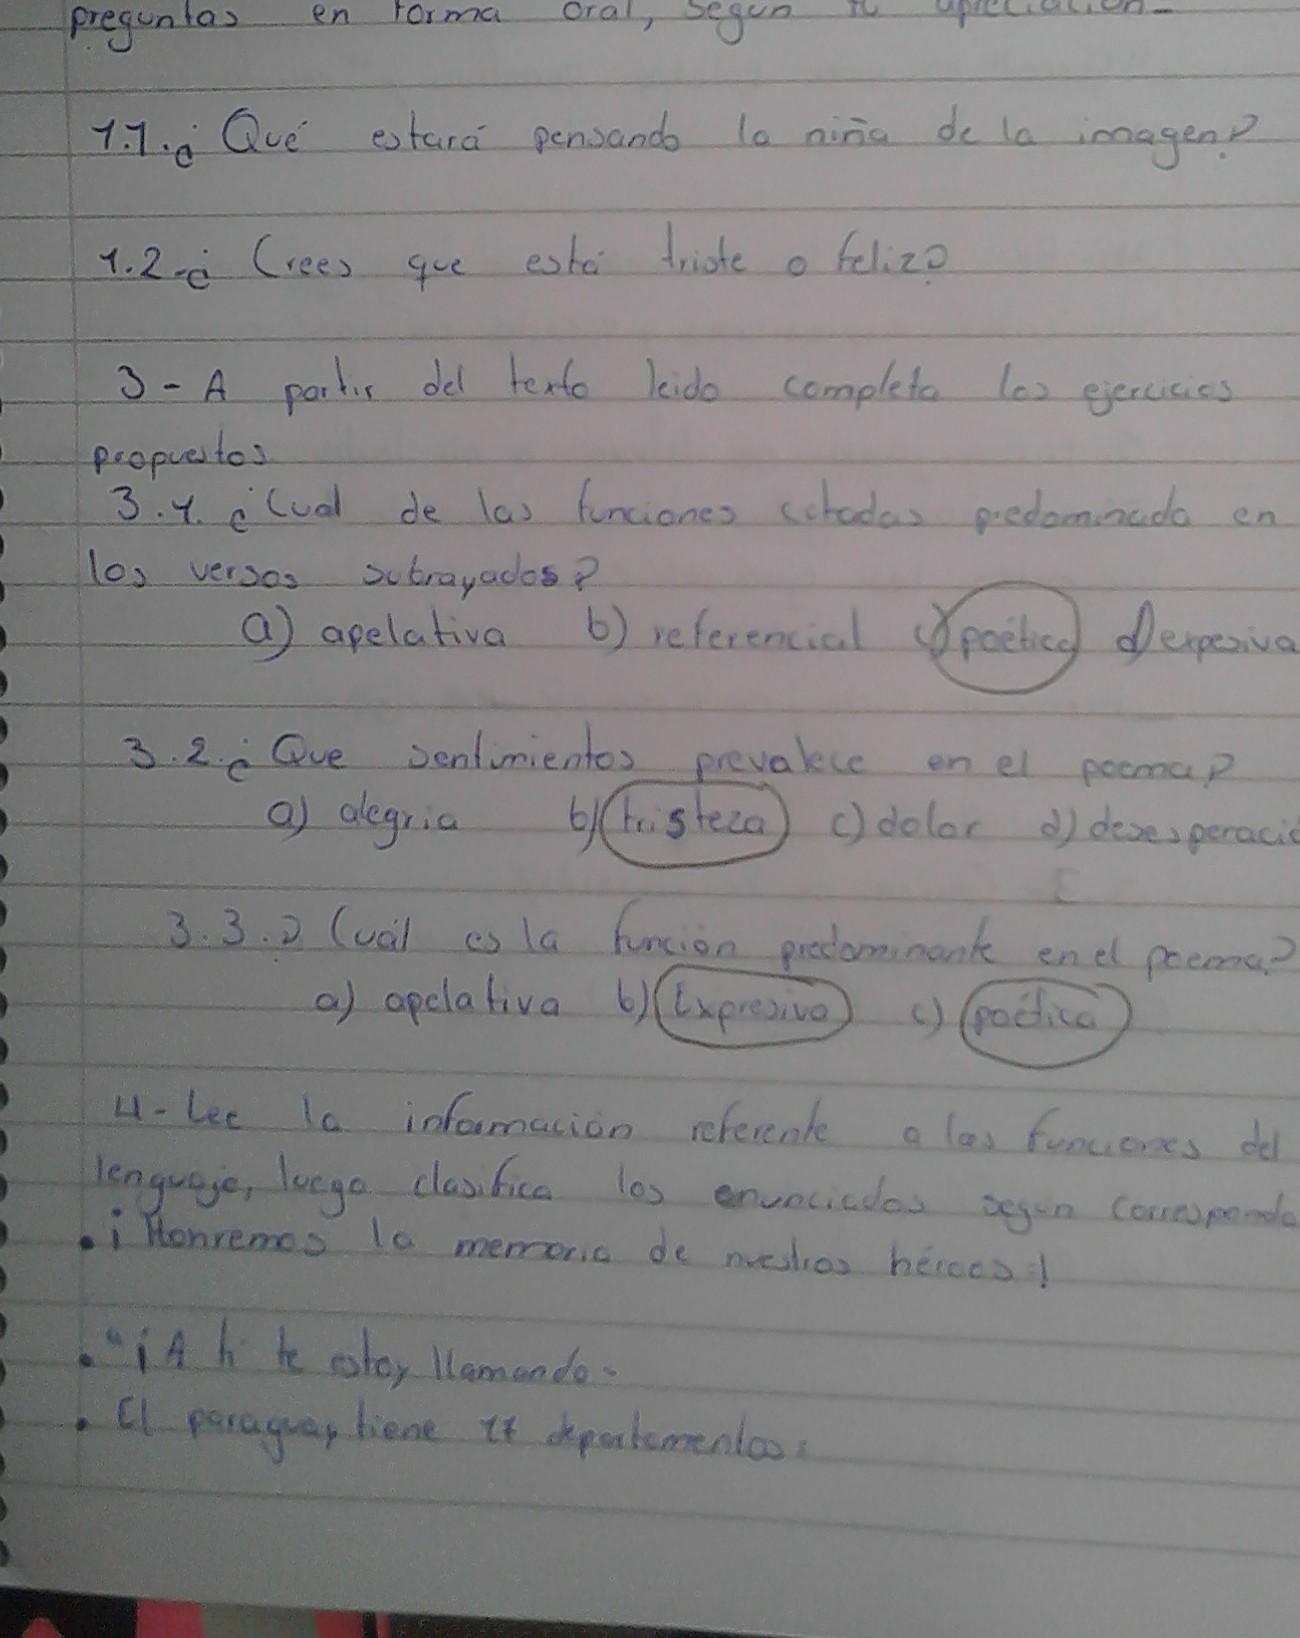 preguntas en forma oral, según tu apreciación-
1.1.¿Qué estará pensando la niña de la imagen?
1.2-¿Crees que está triste o feliz?
3-A partir del texto leido completa los ejercicios
propuestos
3.1.¿Cual de las funciones citadas predominada en
los versos subrayados?
a) apelativa b) referencial c) poética d) expesiva
3.2.¿Que sentimientos prevalece en el poema?
a) alegria b) tristeza c) dolor d) desesperació
3.3.¿Cuál es la función predominante en el poema?
a) apelativa b) Expresiva c) poética
4-Lee la información referente a las funciones del
lenguaje, luego clasifica los enunciados segun corresponda
• ¡Honremos la memoria de nuestros héroes!
• "¡A ti te estoy llamando-
• El paraguay tiene 17 departamentos.